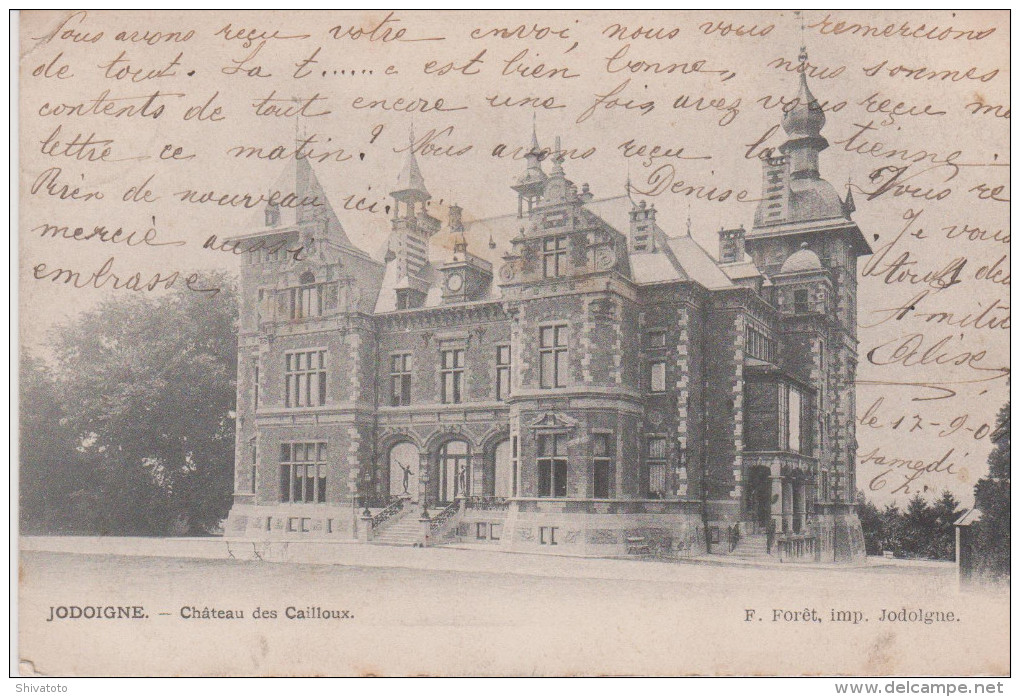 Nous avons reçu votre envoi, nous vous remercions
de tout. La t......e est bien bonne, nous sommes
contents de tout encore une fois, avez vous reçu ma
lettre ce matin? Nous avons reçu la tienne
Rien de nouveau ici. Denise Vous re
mercie aussi Je vous
embrasse tous
Amitié
Alise
le 17-9-0
samedi
JODOIGNE. — Château des Cailloux.
F. Forêt, imp. Jodoigne.
Shivatoto
www.delcampe.net